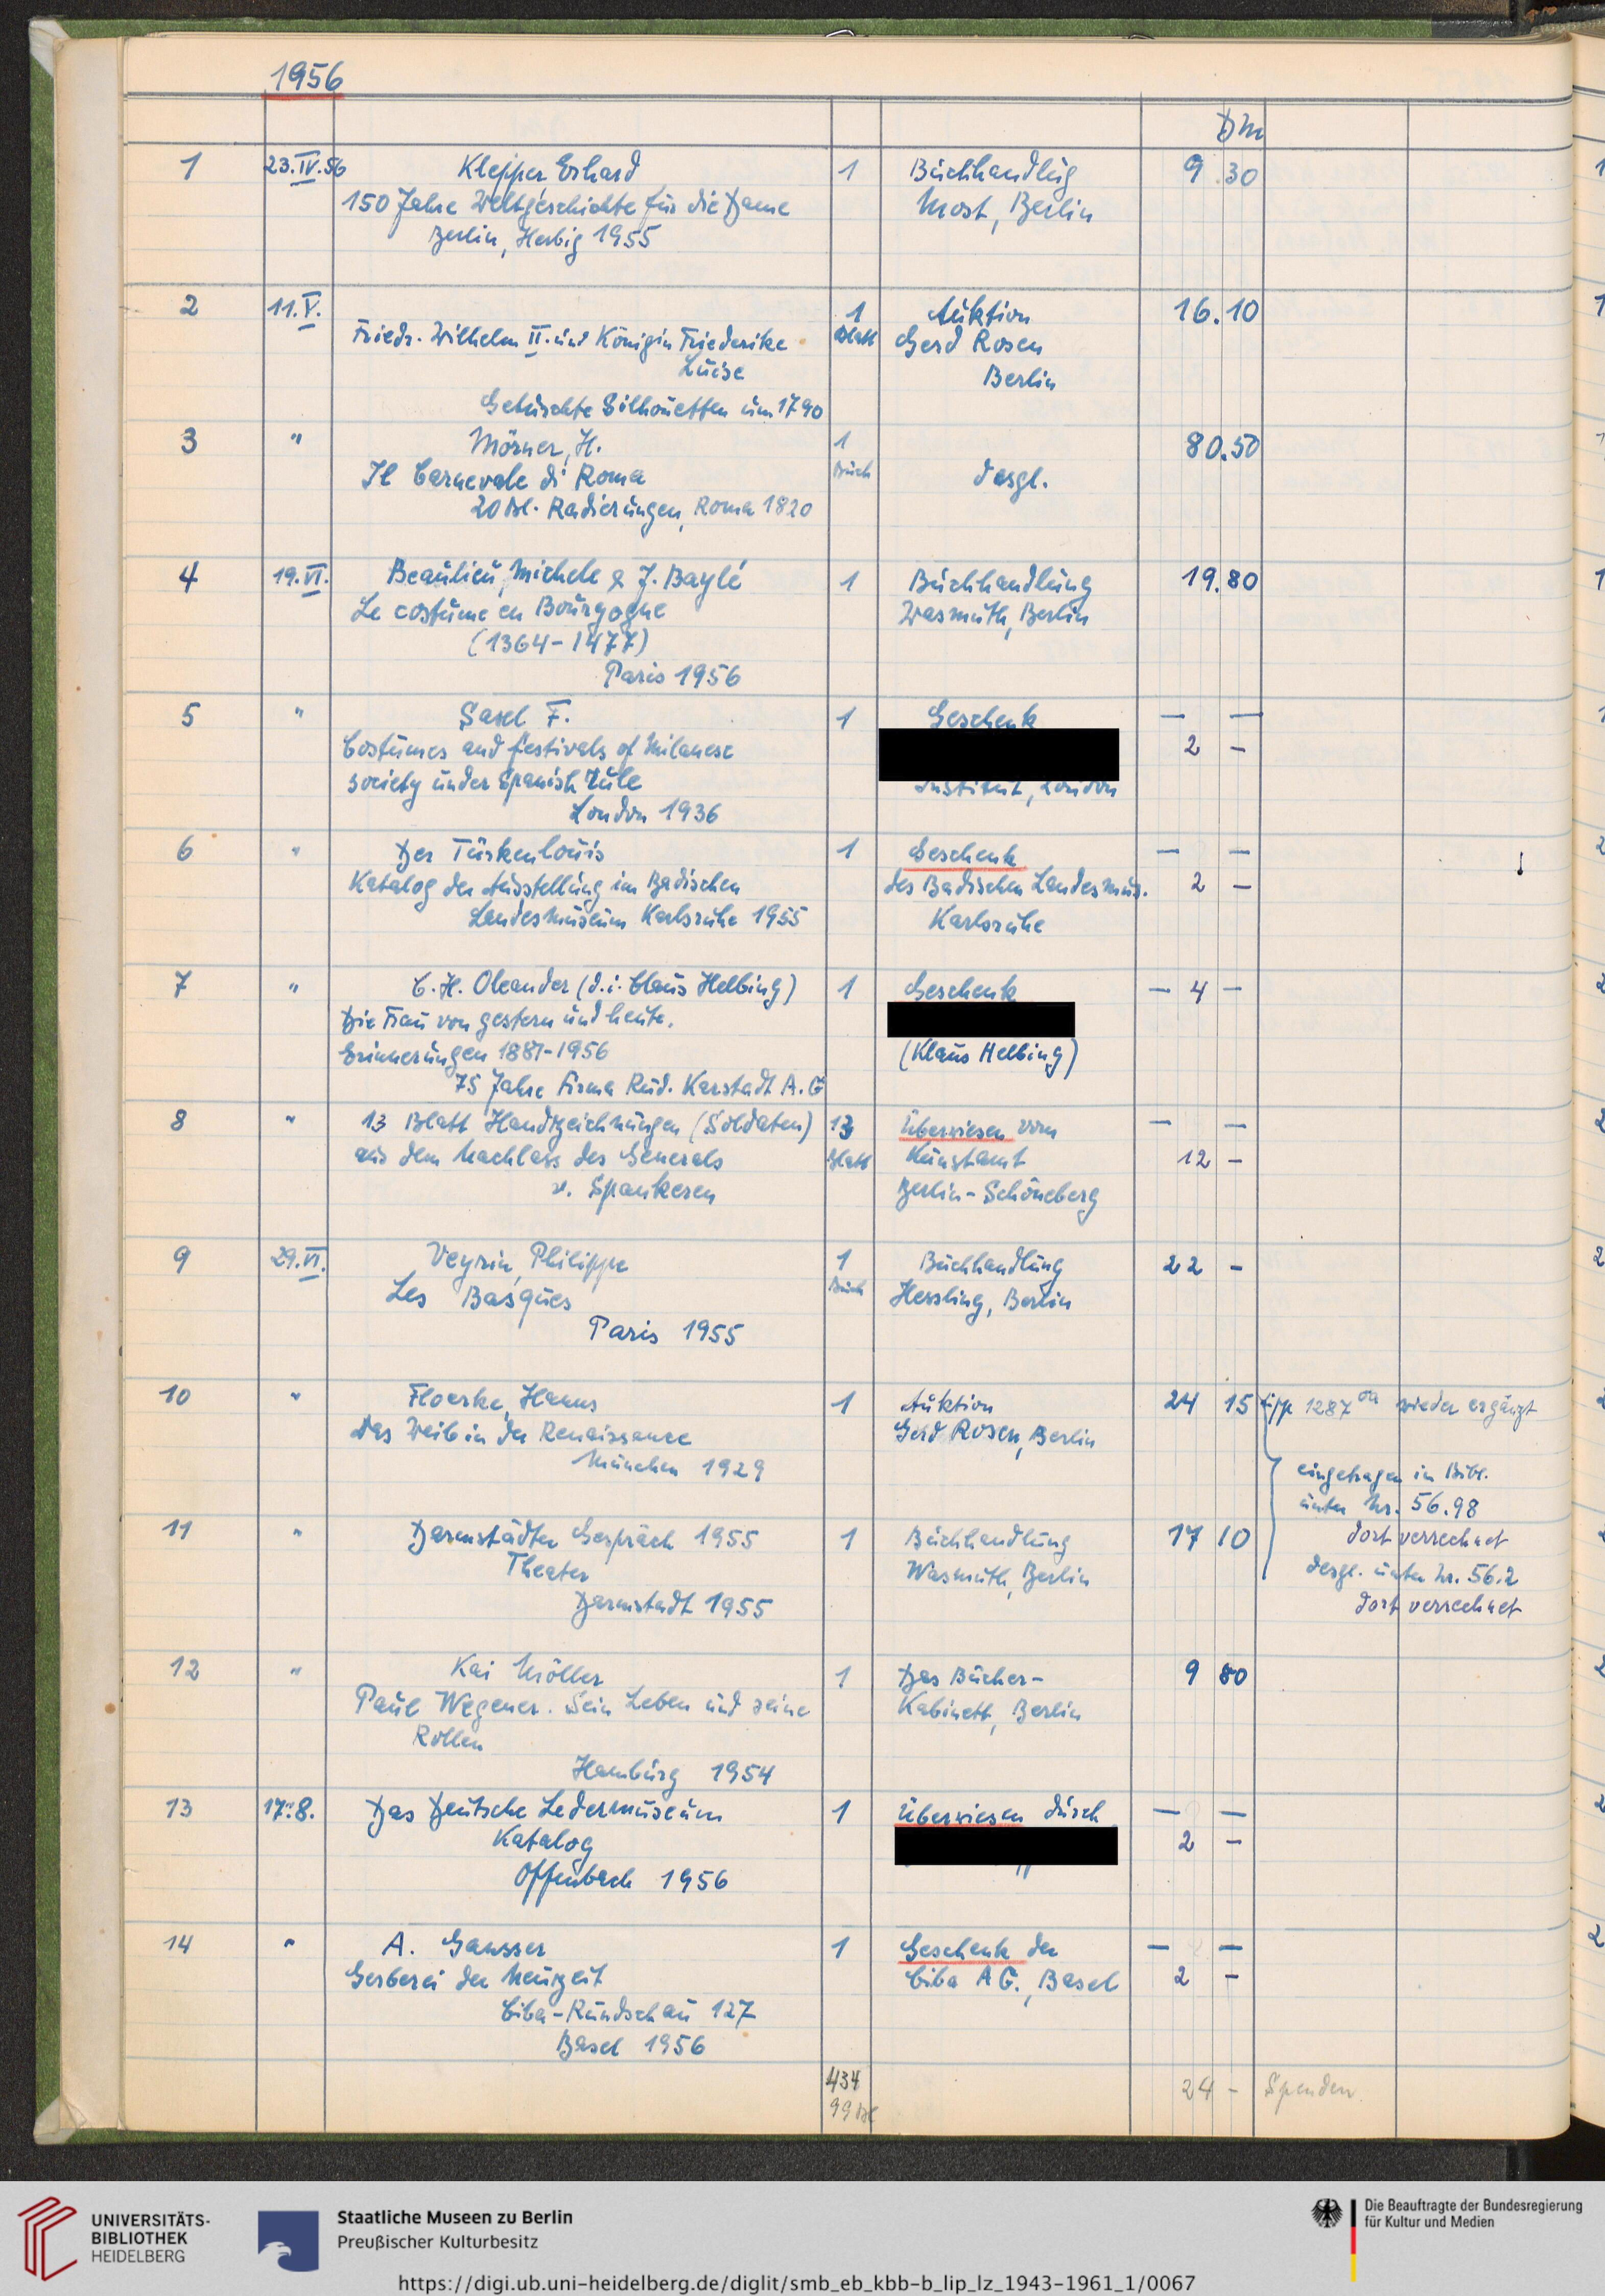 1956
DM
1 23.IV.56 Klepper Erhard 1 Buchhandlg 9.30
150 Jahre Weltgeschichte für die Dame Most, Berlin
Berlin, Herbig 1955
2 11.V. 1 Auktion 16.10
Friedr. Wilhelm II. und Königin Friederike Blatt Gerd Rosen
Luise Berlin
Getuschte Silhouetten um 1790
3 " Mörner, H. 1 80.50
Il Carnevale di Roma Buch desgl.
20 Bl. Radierungen, Roma 1820
4 19.VI. Beaulieu, Michele & J. Baylé 1 Buchhandlung 19.80
Le costume en Bourgogne Wasmuth, Berlin
(1364-1477)
Paris 1956
5 " Saxl F. 1 Geschenk — —
Costumes and festivals of Milanese 2 –
society under Spanish rule Institut, London
London 1936
6 " Der Türkenlouis 1 Geschenk — —
Katalog der Ausstellung im Badischen des Badischen Landesmus. 2 –
Landesmuseum Karlsruhe 1955 Karlsruhe
7 " C. H. Oleander (d.i. Claus Helbing) 1 Geschenk – 4 –
Die Frau von gestern und heute.
Erinnerungen 1881-1956 (Klaus Helbing)
75 Jahre Firma Rud. Karstadt A.G
8 " 13 Blatt Handzeichnungen (Soldaten) 13 Überwiesen vom — —
aus dem Nachlass des Generals Blatt Kunstamt 12 –
v. Spankeren Berlin-Schöneberg
9 29.VI. Veyrin, Philippe 1 Buchhandlung 22 –
Les Basques Buch Hessling, Berlin
Paris 1955
10 " Floerke, Hanns 1 Auktion 24 15 Lipp 1287 wieder ergänzt
Das Weib in der Renaissance Gerd Rosen, Berlin
München 1929
eingetragen in Bibl.
unter Nr. 56.98
11 " Darmstädter Gespräch 1955 1 Buchhandlung 17 10 dort verrechnet
Theater Wasmuth, Berlin desgl. unter Nr. 56.2
Darmstadt 1955 dort verrechnet
12 " Kai Möller 1 Das Bücher- 9 80
Paul Wegener. Sein Leben und seine Kabinett, Berlin
Rollen
Hamburg 1954
13 17.8. Das Deutsche Ledermuseum 1 Überwiesen durch — —
Katalog 2 –
Offenbach 1956
14 " A. Gansser 1 Geschenk der — —
Gerberei der Neuzeit Ciba AG., Basel 2 –
Ciba-Rundschau 127
Basel 1956
434 24 – Spenden
99 Bl
UNIVERSITÄTS-
BIBLIOTHEK
HEIDELBERG
Staatliche Museen zu Berlin
Preußischer Kulturbesitz
Die Beauftragte der Bundesregierung
für Kultur und Medien
https://digi.ub.uni-heidelberg.de/diglit/smb_eb_kbb-b_lip_lz_1943-1961_1/0067